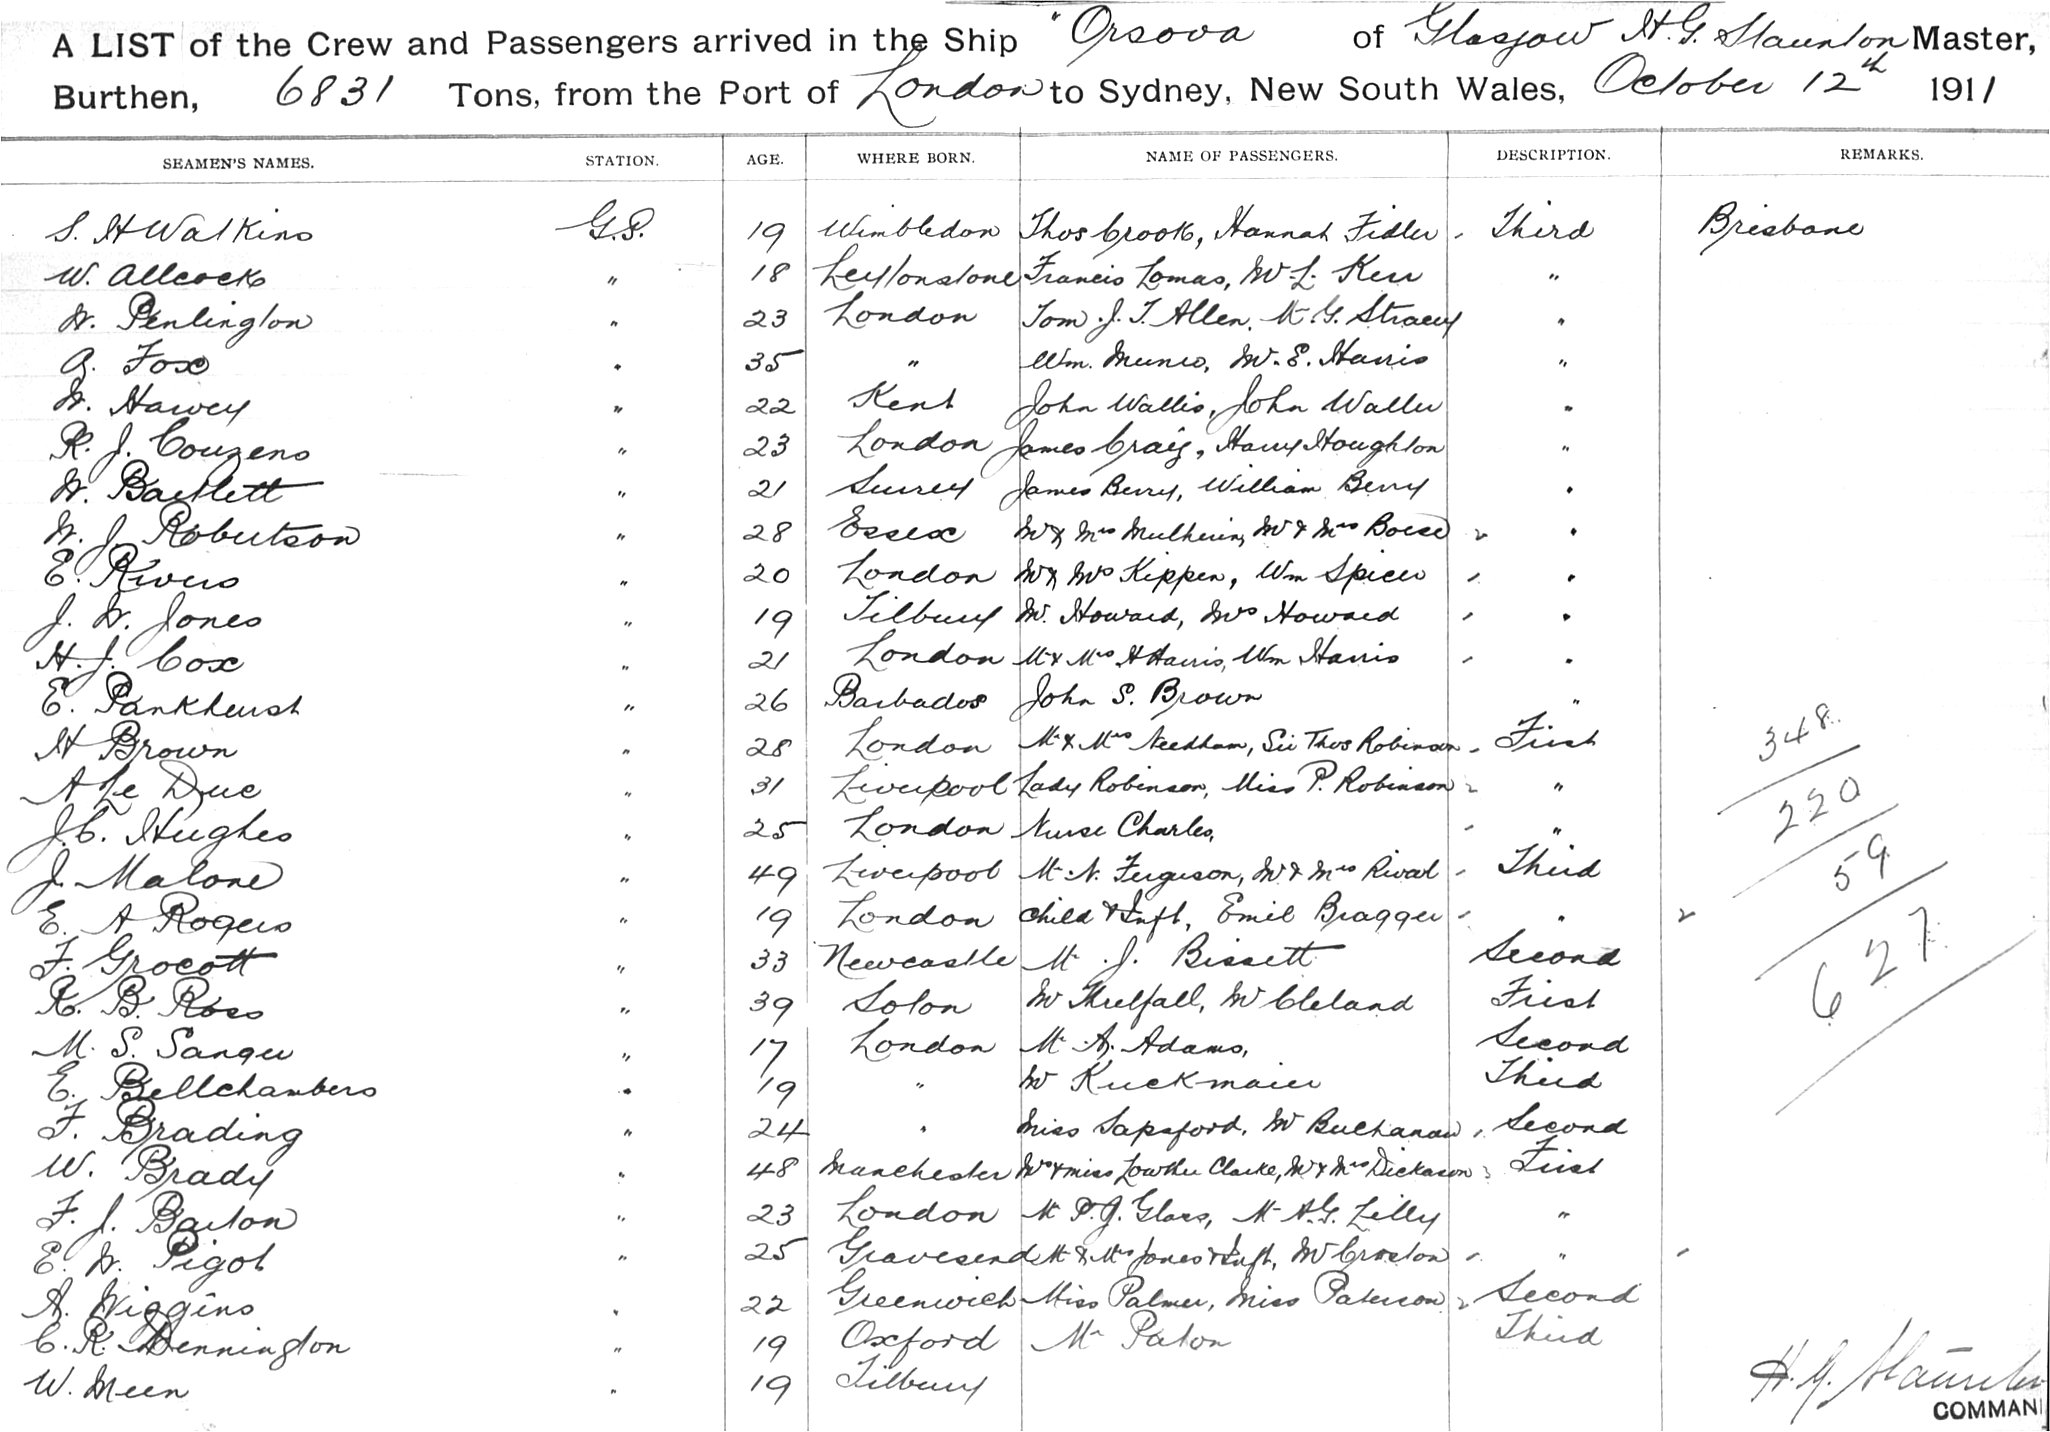 A LIST of the Crew and Passengers arrived in the Ship "Orsova of Glasgow H. G. Staunton Master,
Burthen, 6831 Tons, from the Port of London to Sydney, New South Wales, October 12th 1911
SEAMEN'S NAMES. STATION. AGE. WHERE BORN. NAME OF PASSENGERS. DESCRIPTION. REMARKS.
S. H Watkins G.S. 19 Wimbledon Thos Crook, Hannah Fidler " Third Brisbane
W. Allcock " 18 Leytonstone Francis Lomas, Mr L. Kerr "
W. Penlington " 23 London Tom. J. T. Allen. Mr G. Stracey "
A. Fox " 35 " Wm. Munro, Mr. E. Harris "
W. Harvey " 22 Kent John Wallis, John Waller "
R. J. Couzens " 23 London James Craig, Harry Houghton "
W. Bartlett " 21 Surrey James Berry, William Berry "
W. J. Robertson " 28 Essex Mr & Mrs Mulherin, Mr & Mrs Boese " "
E. Rivers " 20 London Mr & Mrs Kippen, Wm Spicer " "
J. W. Jones " 19 Tilbury Mr. Howard, Mrs Howard " "
H. J. Cox " 21 London Mr & Mrs H Harris, Wm Harris " "
E. Pankhurst " 26 Barbados John S. Brown "
H Brown " 28 London Mr & Mrs Needham, Sir Thos Robinson " First
A Le Duc " 31 Liverpool Lady Robinson, Miss P. Robinson " "
J. C. Hughes " 25 London Nurse Charles, " "
J. Malone " 49 Liverpool Mr. N. Ferguson, Mr & Mrs Rivat " Third
E. A Rogers " 19 London Child & Inft, Emil Bragger " "
F. Grocott " 33 Newcastle Mr. J. Bissett Second
R. B. Ross " 39 Solon Mr Threlfall, Mr Cleland First
M. S. Sanger " 17 London Mr A. Adams, Second
E. Bellchambers " 19 " Mr Kuckmaier Third
F. Brading " 24 " Miss Sapsford, Mr Buchanan " Second
W. Brady " 48 Manchester Mrs & Miss Lowther Clarke, Mr & Mrs Dickason " First
F. J. Barton " 23 London Mr P. J. Glass, Mr A. G. Lilly "
E. W. Pigot " 25 Gravesend Mr & Mrs Jones & Inft, Mr Croston " "
A. Wiggins " 22 Greenwich Miss Palmer, Miss Paterson " Second
C. R. Dennington " 19 Oxford Mr Paton Third
W. Meen " 19 Tilbury
348
220
59
627
H. G. Staunton
COMMAN